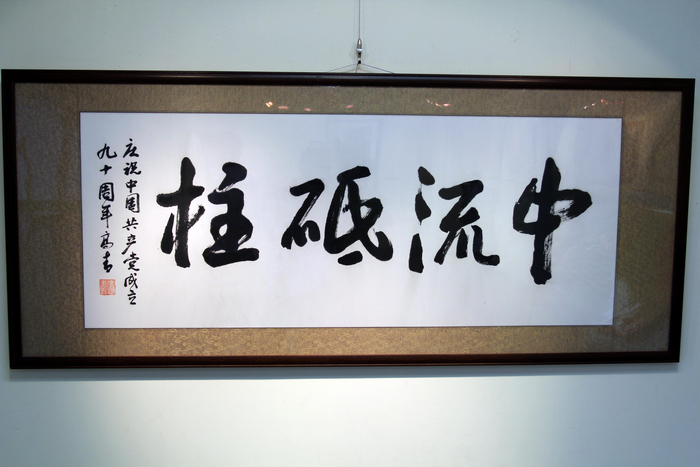 中流砥柱
庆祝中国共产党成立
九十周年